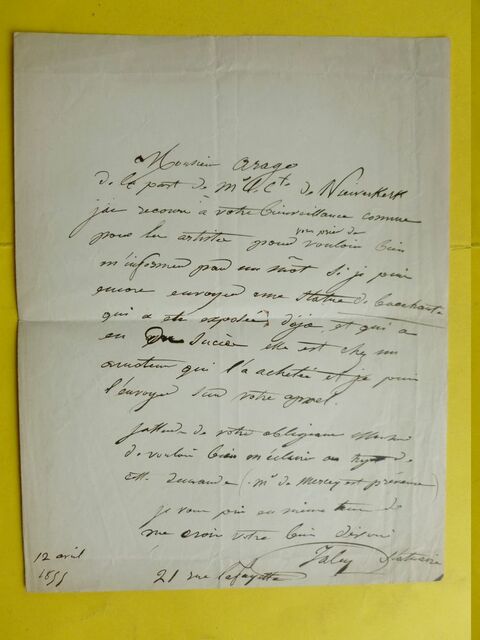 Monsieur Arago
de la part de Mr le Cte de Nieuwerkerk
j'ai recours à votre bienveillance comme
pour les artistes pour vous prier de vouloir bien
m'informer par un mot si je puis
encore envoyer une statue de Bacchante
qui a été exposée déjà et qui a
eu du succès elle est chez un
amateur qui l'a achetée et je puis
l'envoyer sur votre appel.
J'attends de votre obligeance
de vouloir bien m'éclairer au sujet de
demande (Mr de Mercey est prévenu)
je vous prie en même tems de
me croire votre bien dévoué
Jaley statuaire
12 avril
1855
21 rue Lafayette